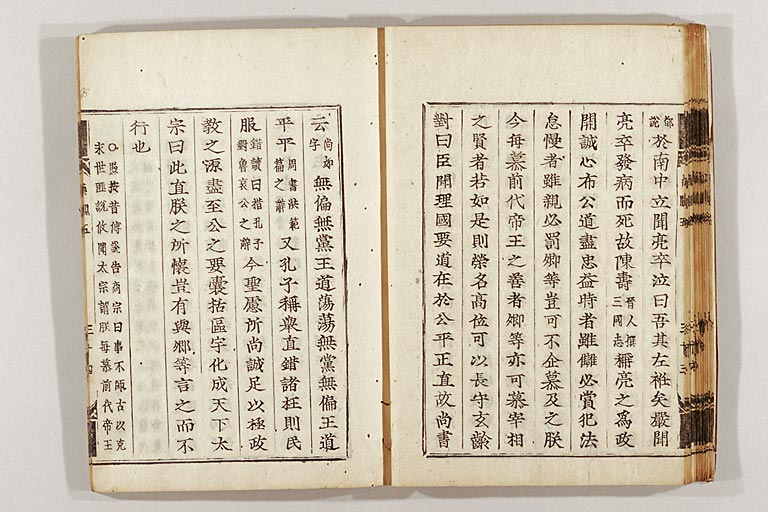 於南中立聞亮卒泣曰吾其左衽矣嚴聞
亮卒發病而死故陳壽晉人撰三國志稱亮之為政
開誠心布公道盡忠益時者雖讎必賞犯法
怠慢者雖親必罰卿等豈可不企慕及之朕
今每慕前代帝王之善者卿等亦可慕宰相
之賢者若如是則榮名高位可以長守玄齡
對曰臣聞理國要道在於公平正直故尚書
云尚如字無偏無黨王道蕩蕩無黨無偏王道
平平周書洪範篇之辭又孔子稱舉直錯諸枉則民
服錯讀曰措孔子對魯哀公之辭今聖慮所尚誠足以極政
教之源盡至公之要囊括區宇化成天下太
宗曰此直朕之所懷豈有與卿等言之而不
行也
○愚按昔傅說告高宗曰事不師古以克
永世匪說攸聞太宗謂朕每慕前代帝王